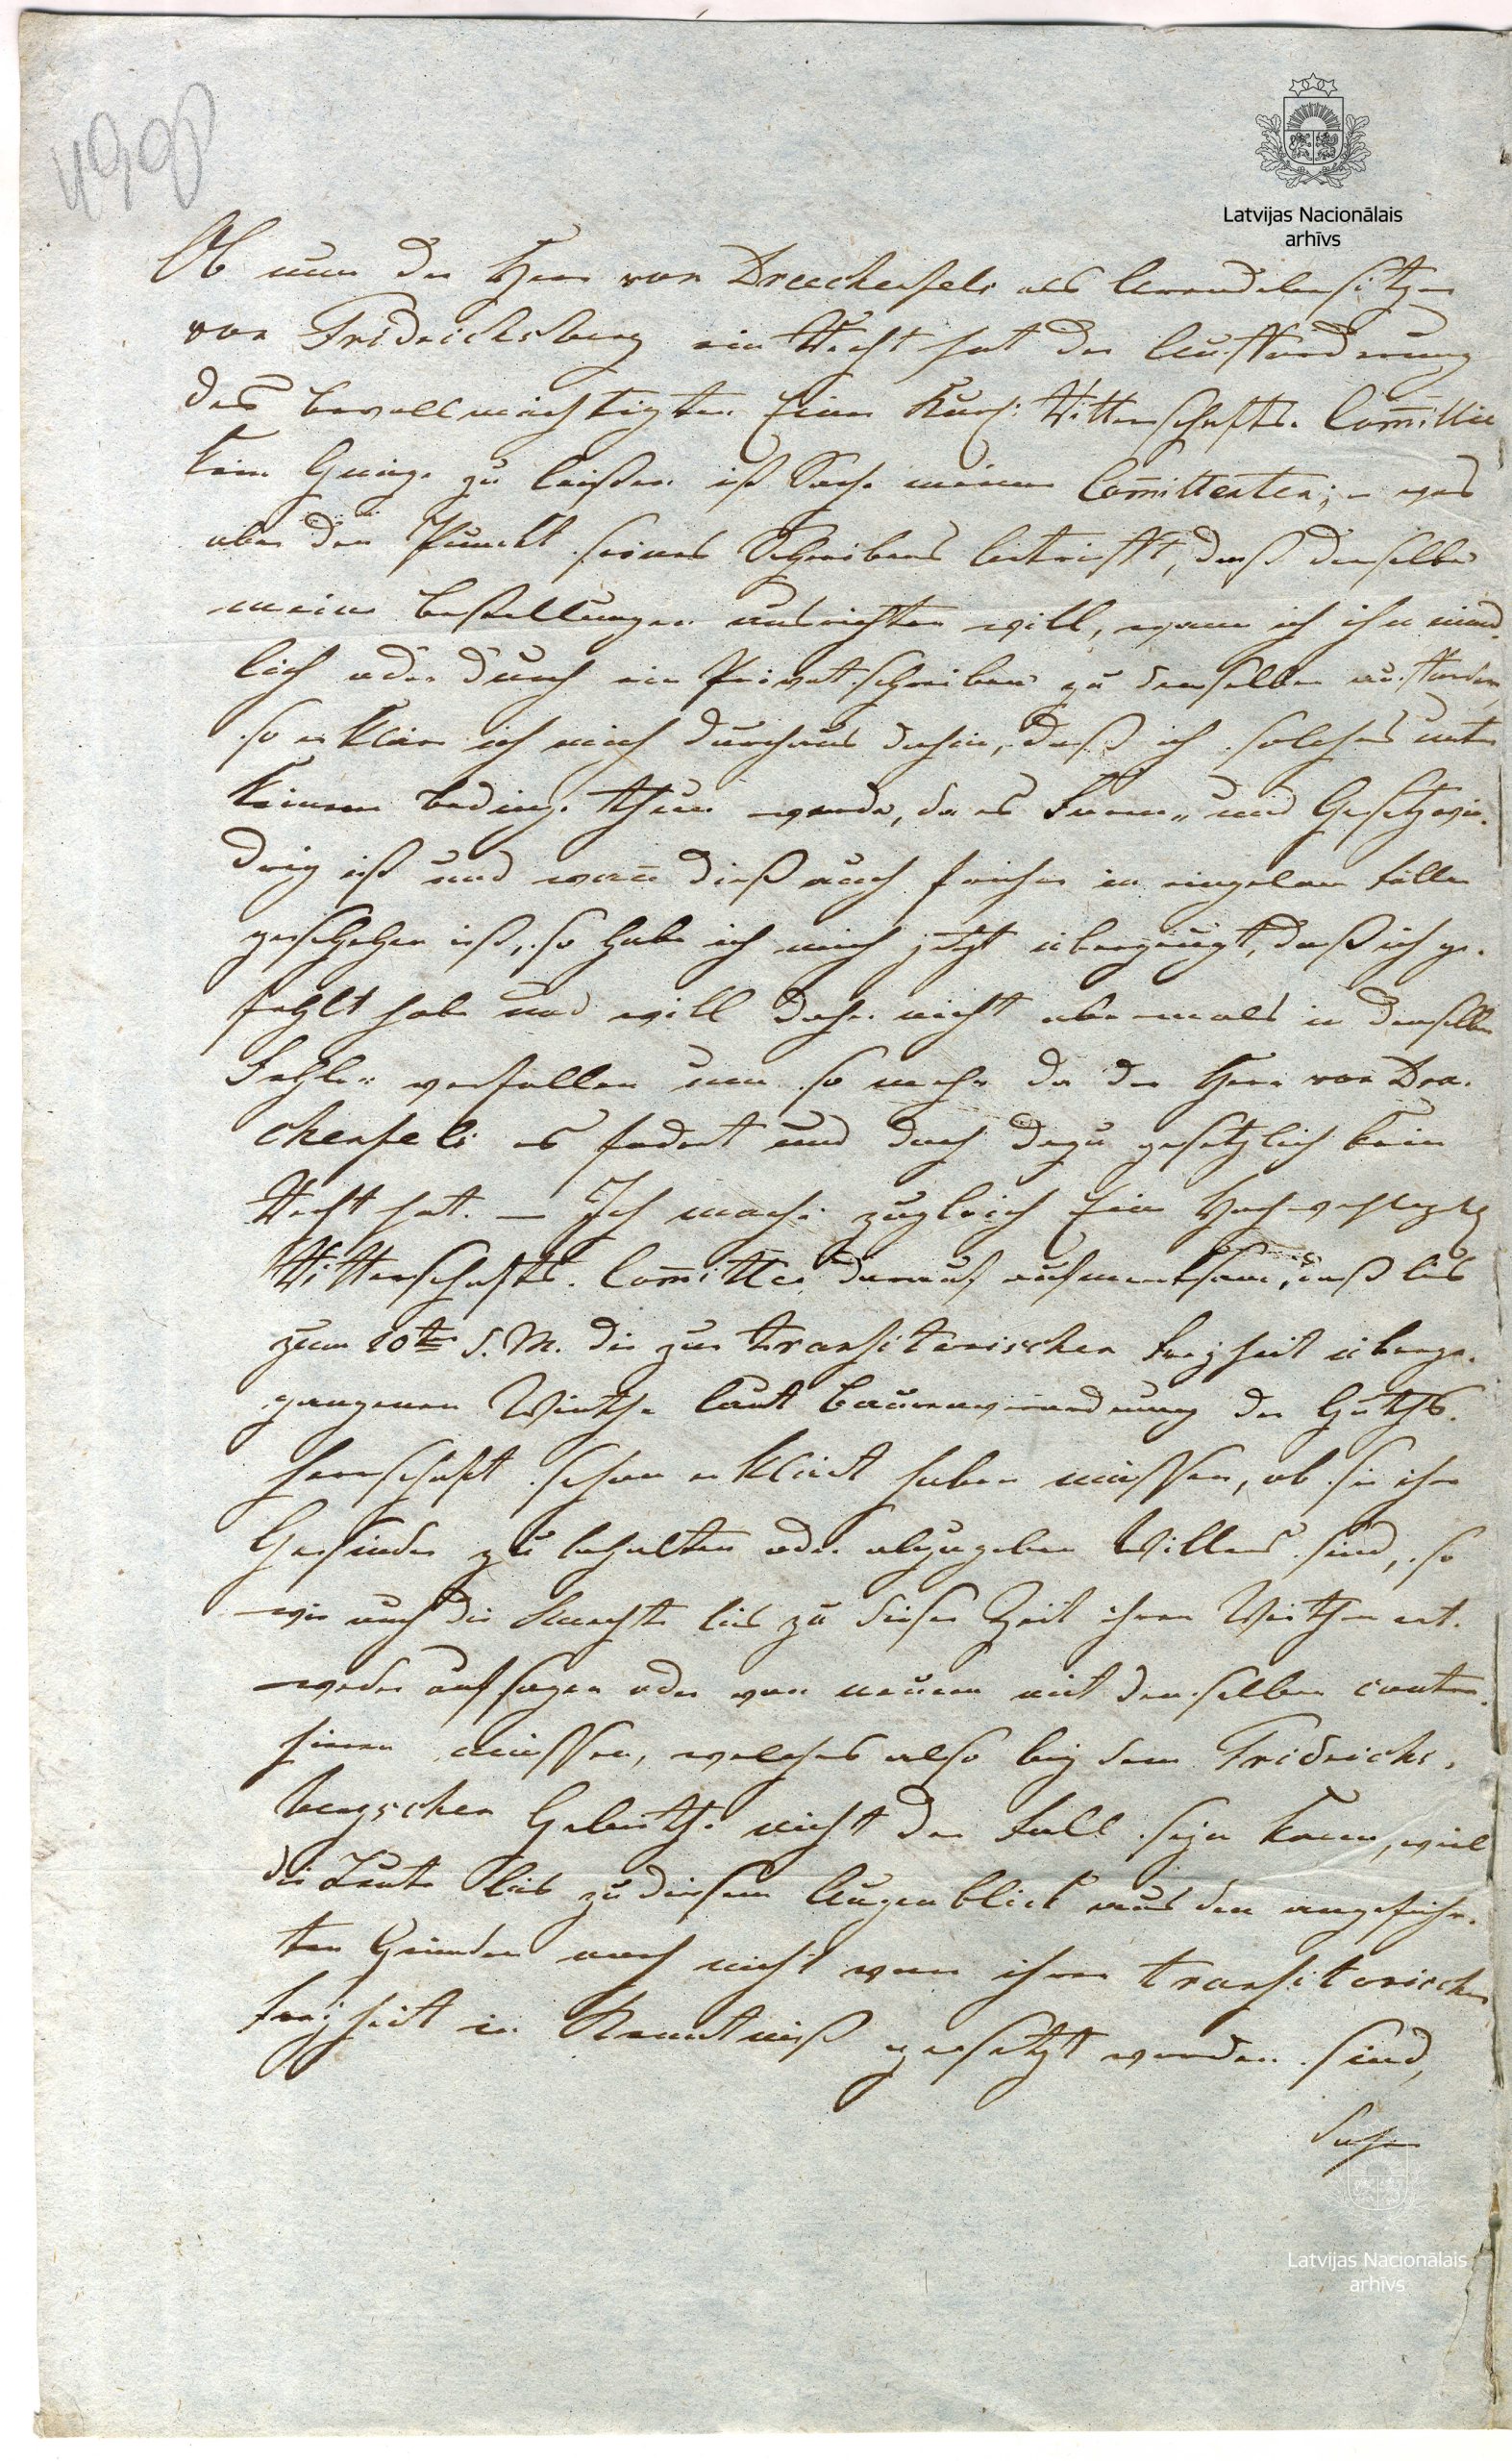 Latvijas Nacionālais
arhīvs
Ob nun der Herr von Drachenfels als Arendebesitzer
von Fridrichsberg ein Recht hat der Aufforderung
des bevollmächtigten Einer Kurl: Ritterschafts. Com̄ittée
kein Genüge zu leisten ist Sache meiner Com̄ittenten; – was
aber den Punckt seines Schreibens betrifft, daß derselbe
meine Bestellungen ausrichten will, wenn ich ihn münd-
lich oder durch ein Privatschreiben zu demselben auffordere,
so erkläre ich mich durchaus dahin, daß ich solches unter
keinem Beding. thun werde, da es Form„ und Gesetzwie-
drig ist und wan̄ dieß auch früher in einzelnen Fällen
geschehen ist, so habe ich mich jetzt überzeugt, daß ich ge-
fehlt habe und will daher nicht abermals in denselben
Fehler verfallen um so mehr da der Herr von Dra-
chenfels es fodert und doch dazu gesetzlich kein
Recht hat. — Ich mache zugleich Eine
Ritterschafts. Com̄ittée darauf aufmerksam, daß bis
zum 10ten d. M. die zur transitorischen Freyheit überge-
gangenen Wirthe laut Bauernverordnung der Guths-
herrschaft schon erklärt haben müssen, ob sie ihre
Gesinder zu behalten oder abzugeben Willens sind, so
wie auch die Knechte bis zu dieser Zeit ihren Wirthen ent-
weder aufsagen oder von neuem mit denselben contra-
hieren müssen, welches also bey dem Fridrichs-
bergschen Gebiethe nicht der Fall seyn kann, weil
die Leute bis zu diesem Augenblick aus den angeführ-
ten Gründen noch nicht von ihrer transitorischen
Freyheit in Kenntniß gesetzt worden sind,
daher
Latvijas Nacionālais
arhīvs